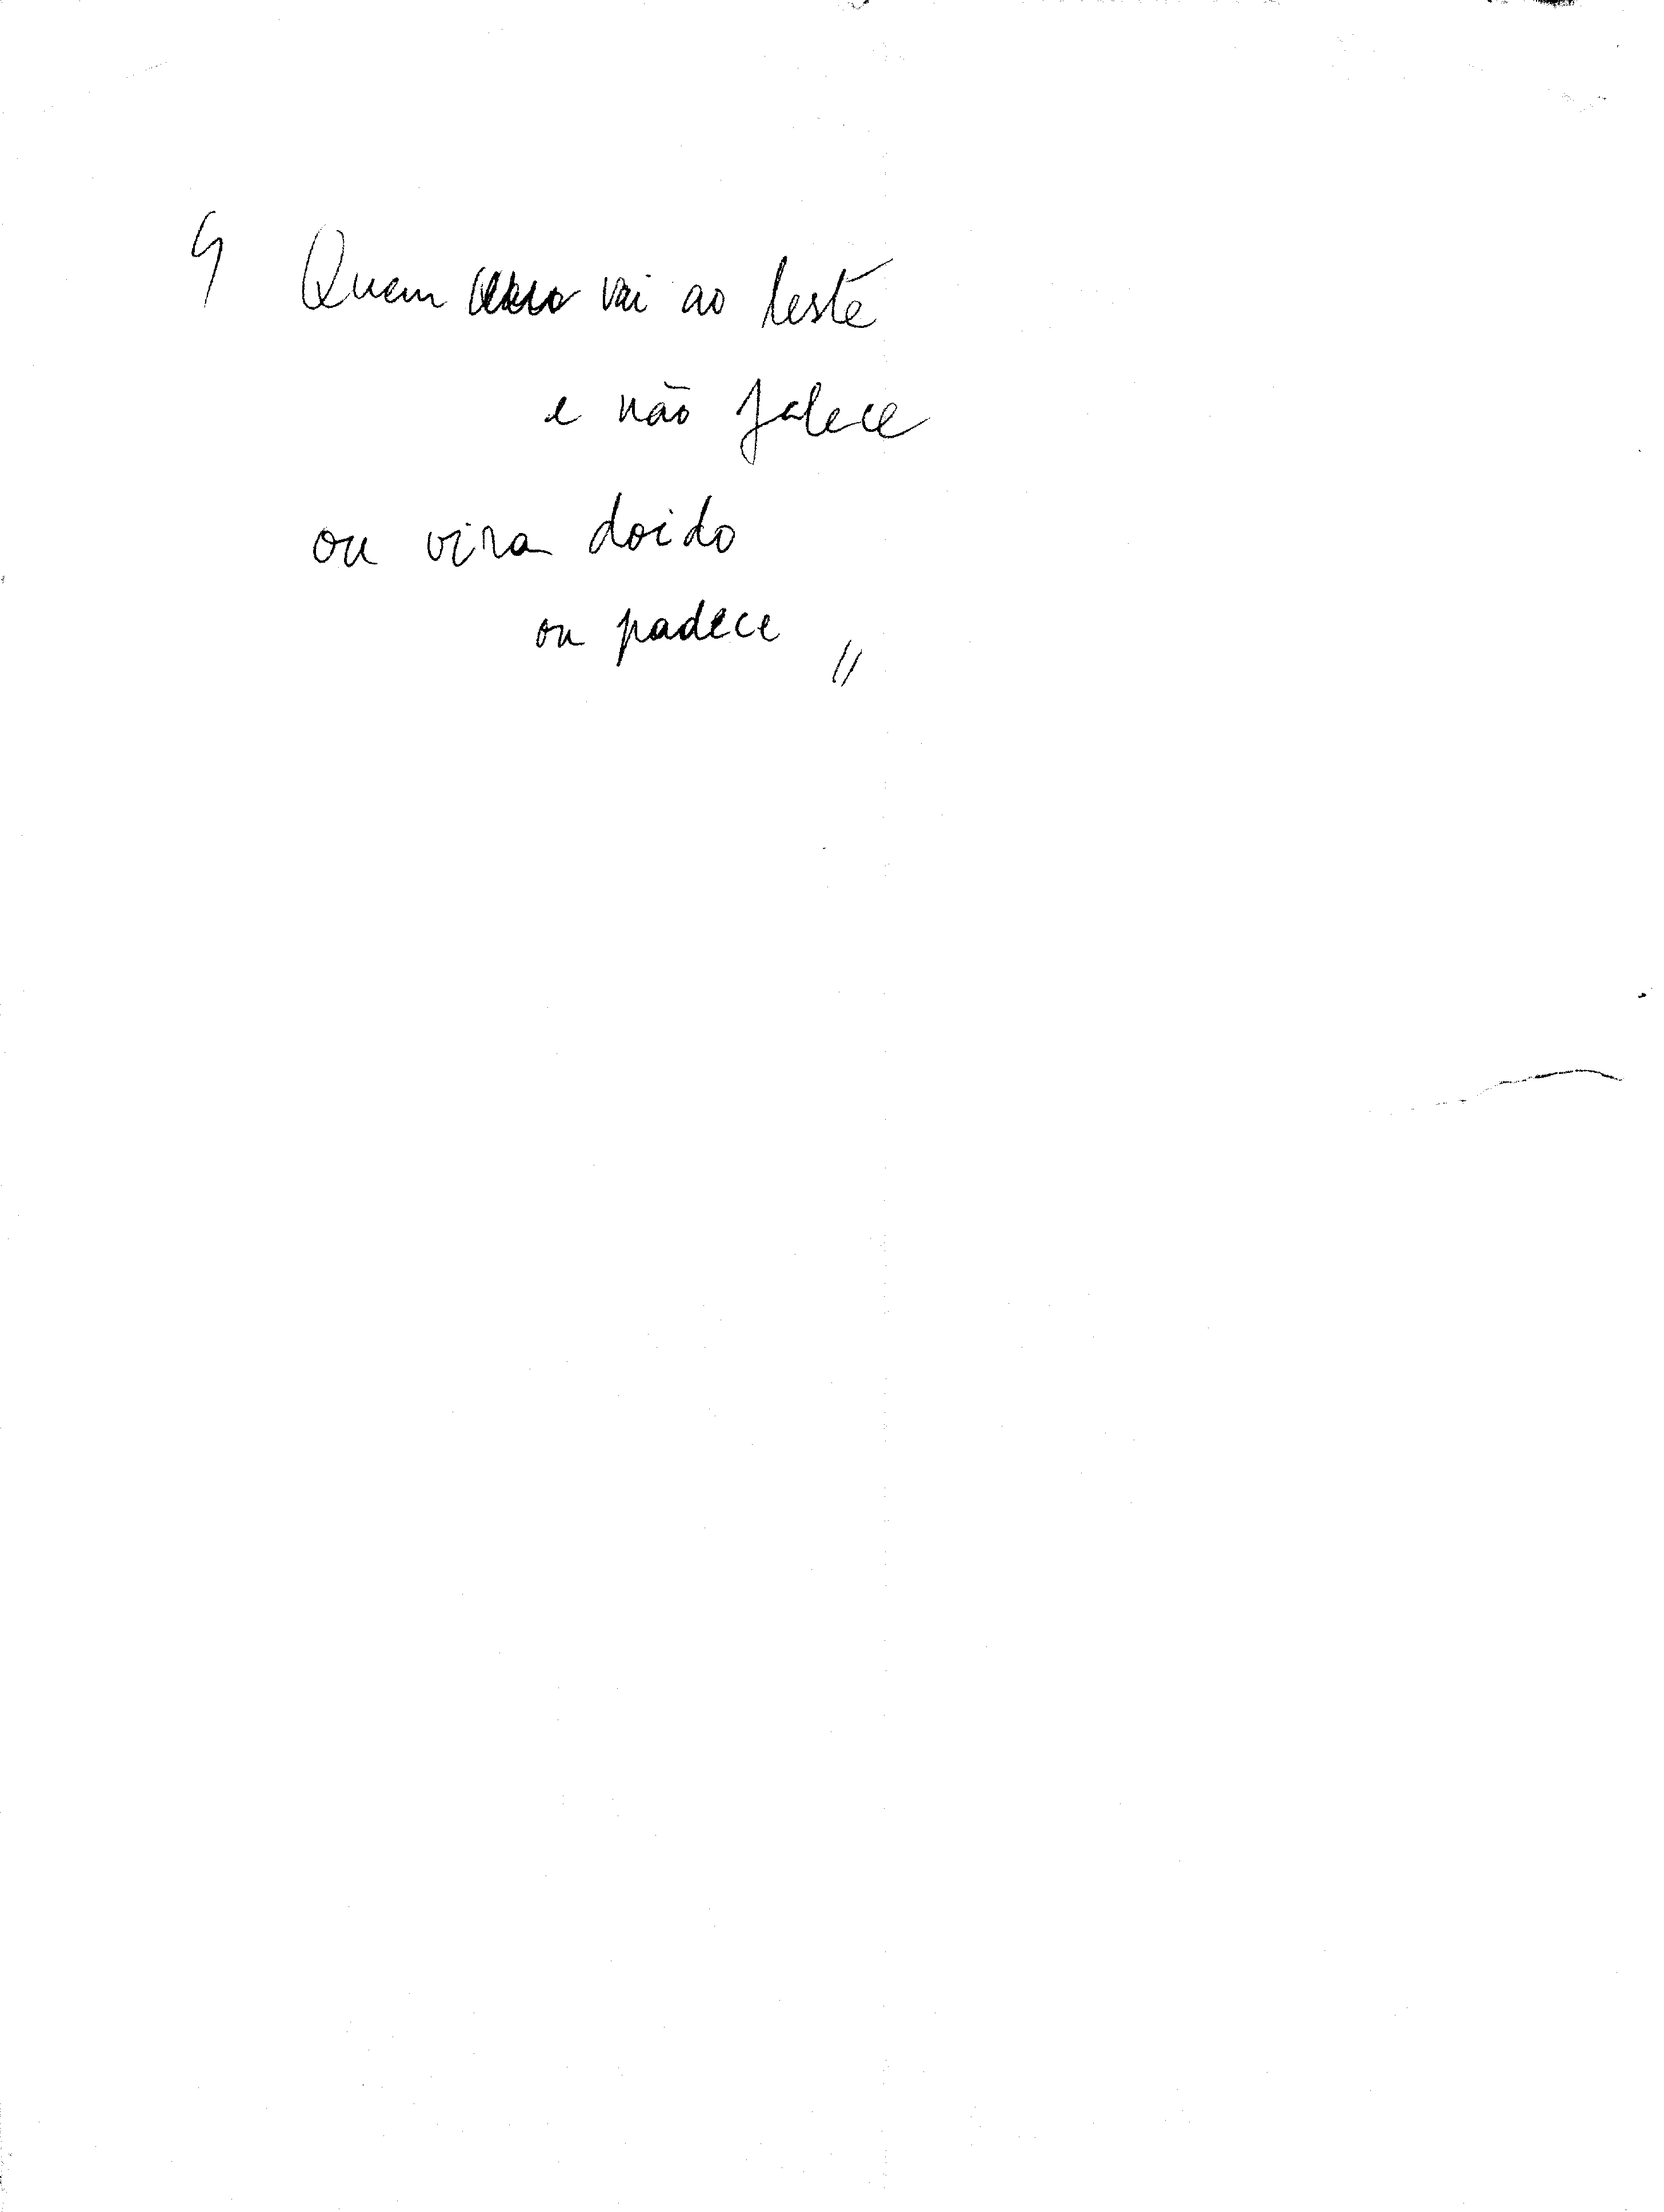 Quem vai ao leste
e não falece
ou vira doido
ou padece //